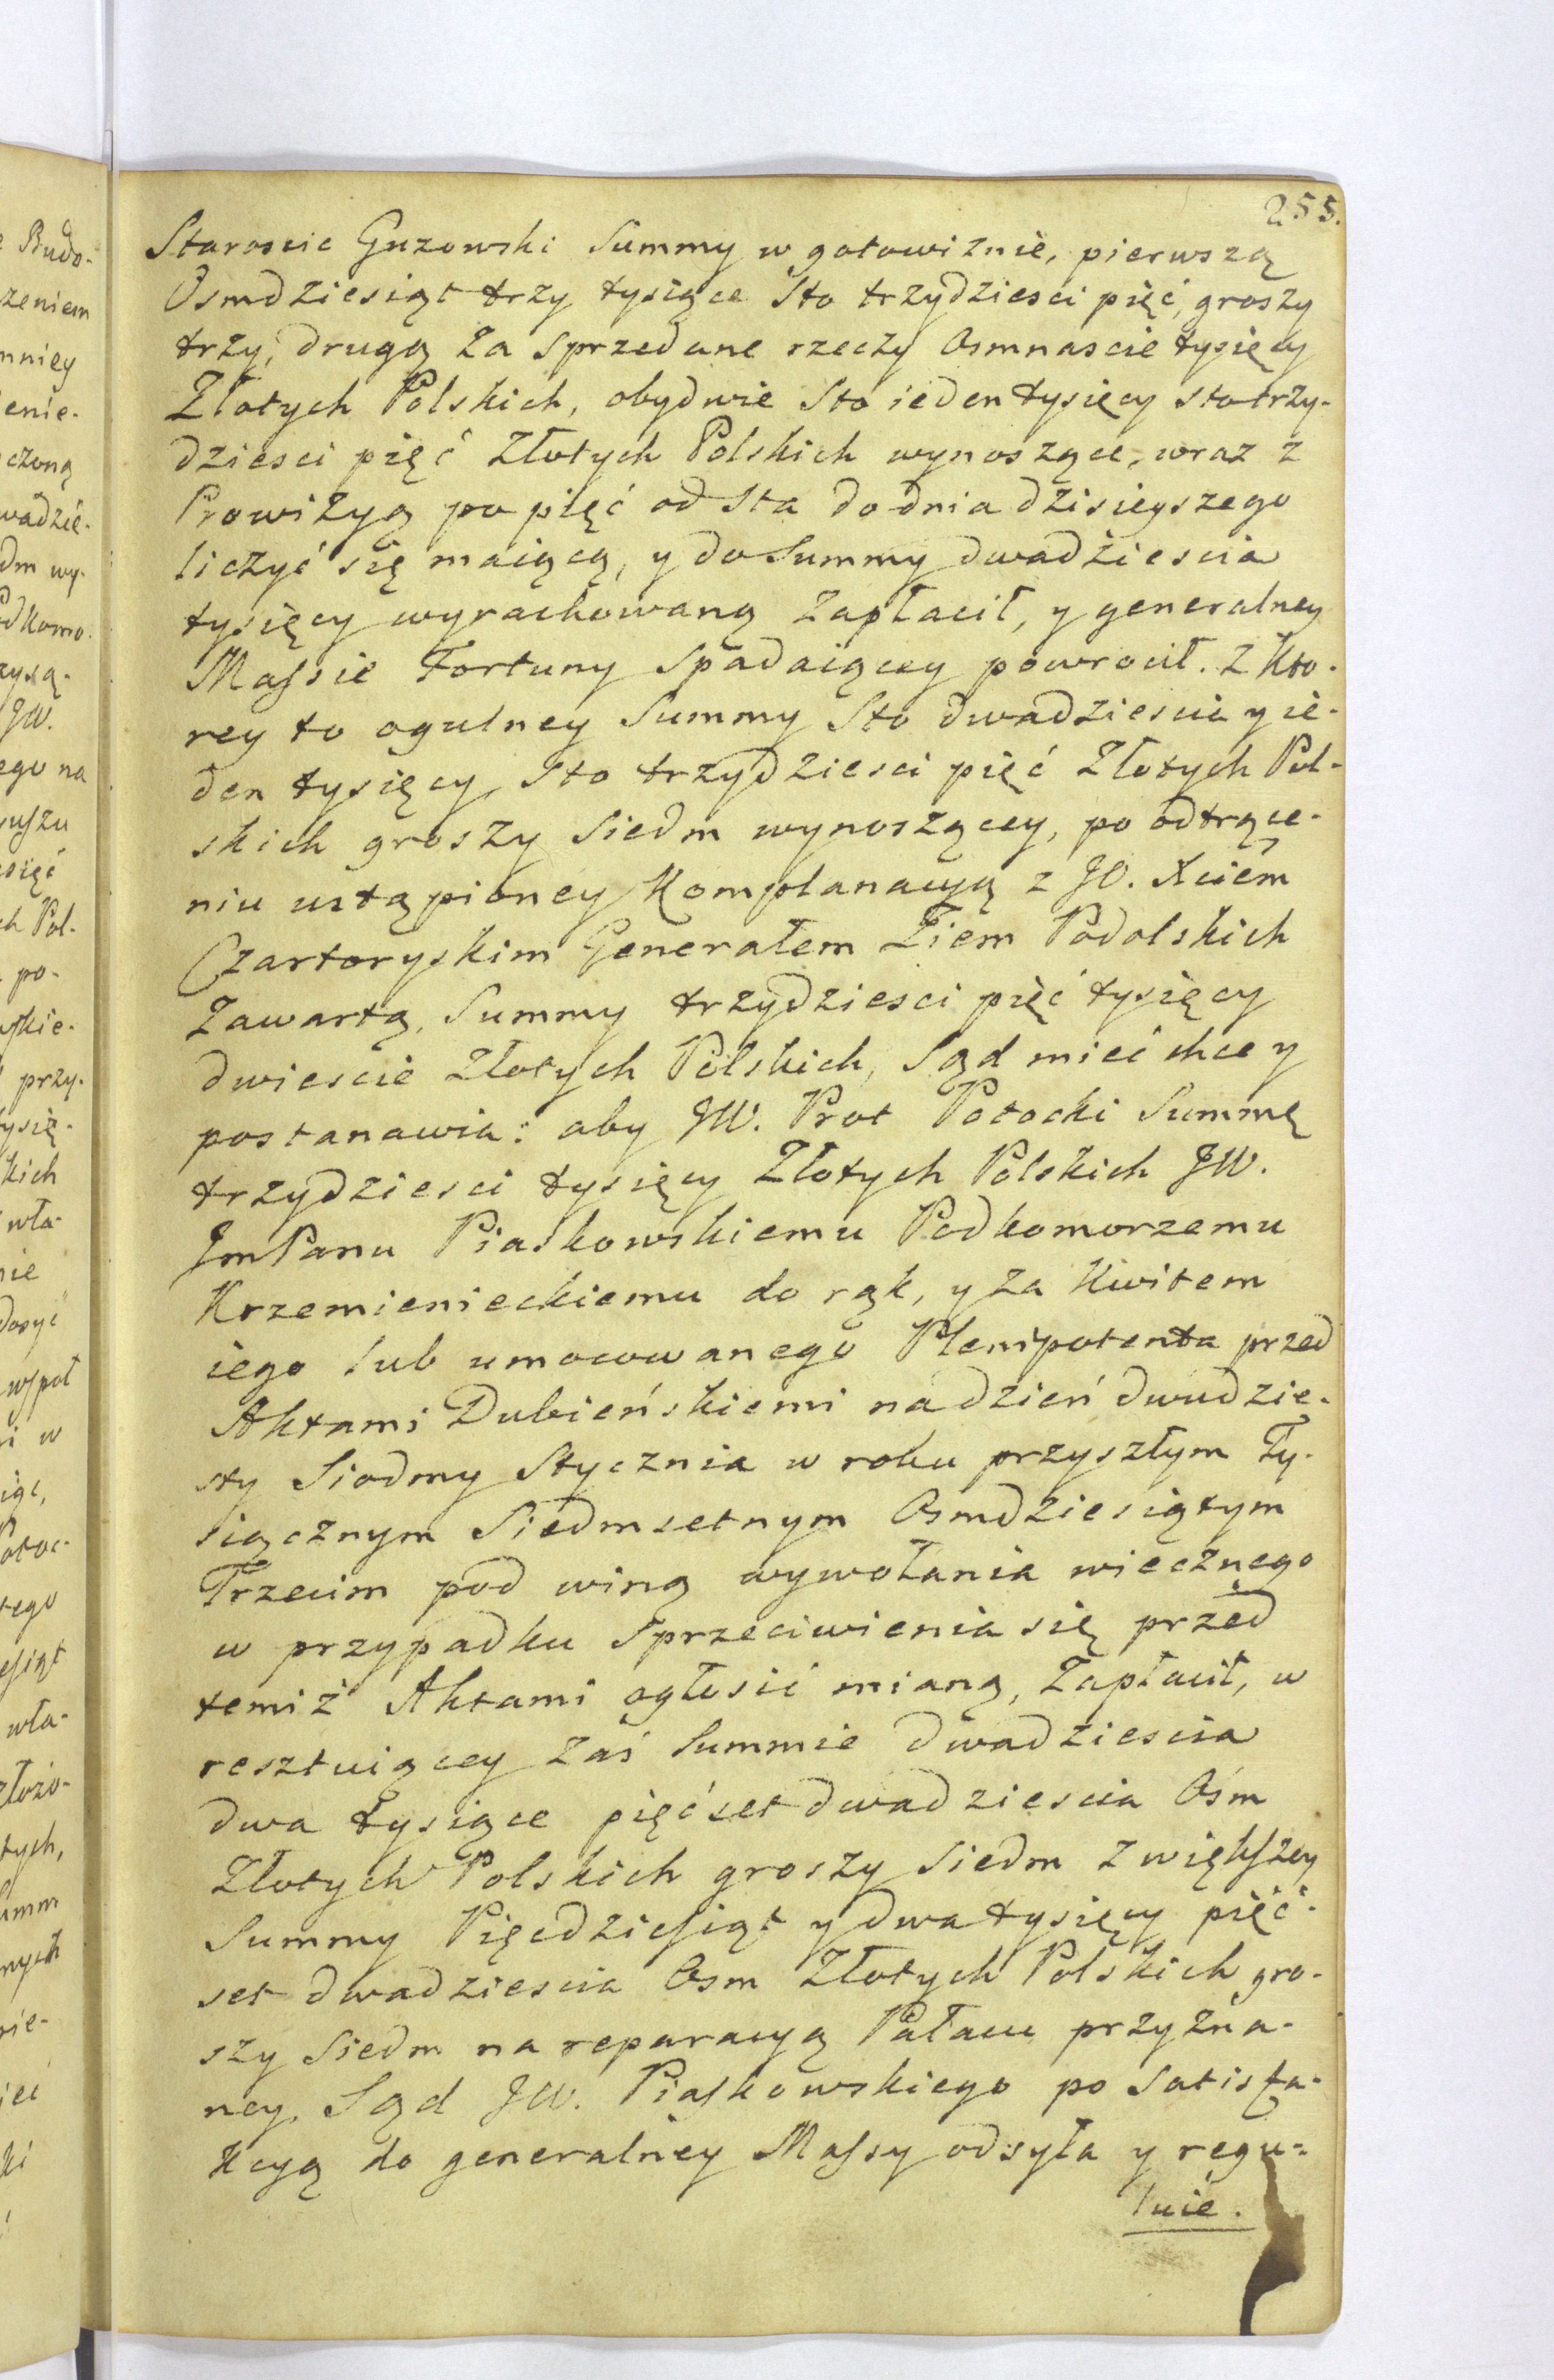 255.
Staroscic Guzowski Summy w gotowiznie, pierwszą
Osmdziesiąt trzy tysiące Sto trzydziesci pięć, groszy
trzy, drugą za sprzedane rzeczy Osmnascie tysięcy
Złotych Polskich, obydwie Sto ieden tysięcy sto trzy-
dziesci pięć Złotych Polskich wynoszące, wraz z
Prowizyą po pięć od Sta do dnia dzisieyszego
liczyć się maiącą, y do Summy dwadziescia
tysięcy wyrachowaną zapłacił, y generalney
Massie Fortuny Spadaiącey powrocił. z Kto-
rey to ogulney Summy Sto dwadziescia y ie-
den tysięcy Sto trzydziesci pięć Złotych Pol-
skich groszy Siedm wynoszącey, po odtrące-
niu ustąpioney Komplanacyą z JO. Xciem
Czartoryskim Generałem Ziem Podolskich
Zawartą, Summy trzydziesci pięć tysięcy
dwiescie Złotych Polskich, Sąd mieć chce y
postanawia: aby JW. Prot Potocki Summę
trzydziesci tysięcy Złotych Polskich JW.
JmPanu Piaskowskiemu Podkomorzemu
Krzemienieckiemu do rąk, y za Kwitem
iego lub umocowanego Plenipotenta przed
Aktami Dubieńskiemi na dzień dwudzie-
sty Siodmy Stycznia w roku przyszłym Ty-
siącznym Siedmsetnym Osmdziesiątym
Trzecim pod winą wywołania wiecznego
w przypadku Sprzeciwienia się przed
temiż Aktami ogłosić mianą, Zapłacił, w
resztuiącey Zaś Summie dwadziescia
dwa tysiące pięćset dwadziescia Ośm
Złotych Polskich groszy Siedm z większey
Summy Pięcdziesiąt y dwa tysięcy pięć-
set dwadziescia Osm Złotych Polskich gro-
szy Siedm na reparacyą Pałacu przyzna-
ney, Sąd JW. Piaskowskiego po Satisfa-
kcyą do generalney Massy odsyła y regu-
luie.